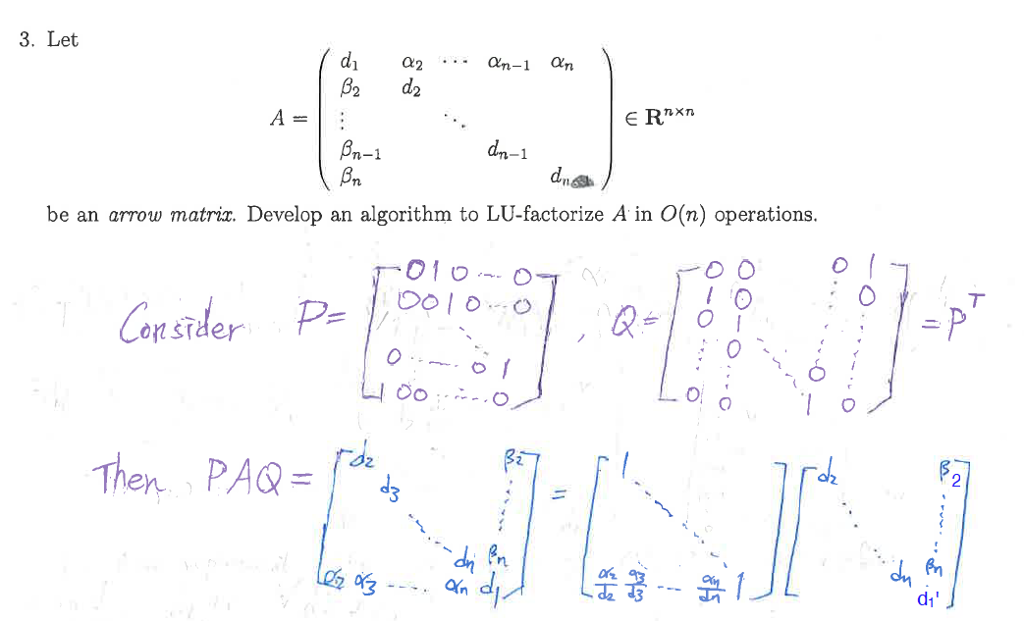 3. Let
d₁ α₂ ⋯ αₙ₋₁ αₙ
β₂ d₂
A = ⋮ ⋱ ∈ Rⁿˣⁿ
βₙ₋₁ dₙ₋₁
βₙ dₙ
be an arrow matrix. Develop an algorithm to LU-factorize A in O(n) operations.
Consider P = [0 1 0 ⋯ 0; 0 0 1 0 ⋯ 0; ⋱; 0 ⋯ 0 1; 1 0 0 ⋯ 0], Q = [0 0 0 1; 1 0 ⋮ 0; 0 1 ⋮ ⋮; ⋮ 0 ⋱ 0 ⋮; 0 0 1 0] = Pᵀ
Then PAQ = [d₂ β₂; d₃ ⋮; ⋱ dₙ βₙ; α₂ α₃ ⋯ αₙ d₁] = [1; ⋱; α₂/d₂ α₃/d₃ ⋯ αₙ/dₙ 1] [d₂ β₂; ⋱ ⋮; dₙ βₙ; d₁']